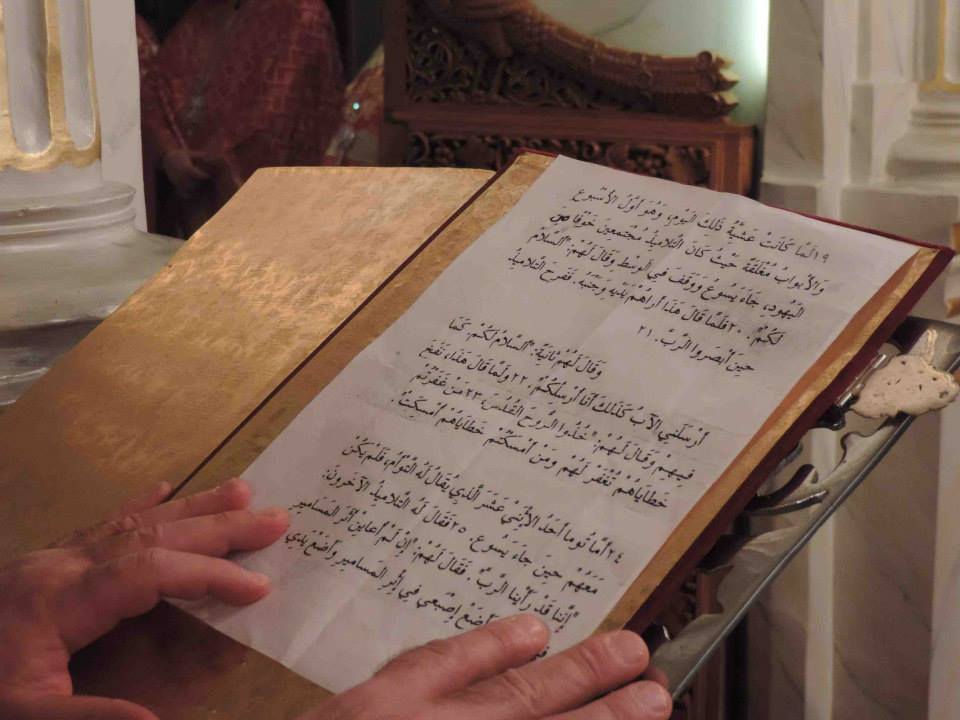 ١٩ لَمَّا كَانَتْ عَشِيَّةُ ذَلِكَ الْيَوْمِ، وَهُوَ أَوَّلُ الأُسْبوعِ
وَالأَبْوابُ مُغْلَقَةٌ حَيْثُ كَانَ التَّلاميذُ مُجْتَمِعينَ خَوْفًا مِنَ
اليَهُودِ، جَاءَ يَسُوعُ وَوَقَفَ فِي الْوَسْطِ وَقَالَ لَهُمْ: "السَّلاَمُ
لَكُمْ". ٢٠ فَلَمَّا قَالَ هَذَا أَراهُمْ يَدَيْهِ وَجَنْبَهُ. فَفَرِحَ التَّلاَمِيذُ
حِينَ أَبْصَروا الرَّبَّ. ٢١
وَقَالَ لَهُمْ ثَانِيَةً: "السَّلاَمُ لَكُمْ، كَمَا
أَرْسَلَني الآبُ كَذَلِكَ أَنَا أُرْسِلُكُمْ". ٢٢ وَلَمَّا قَالَ هَذَا، نَفَخَ
فِيهِمْ وَقَالَ لَهُمْ: "خُذُوا الرُّوحَ القُدُسَ ٢٣ مَنْ غَفَرْتُمْ
خَطَايَاهُمْ تُغْفَرْ لَهُمْ وَمَنْ أَمْسَكْتُمْ خَطَايَاهُمْ أُمْسِكَتْ".
٢٤ أَمَّا تُومَا أَحَدُ الاثْنَيْ عَشَرَ الَّذِي يُقَالُ لَهُ التَّوْأَمُ، فَلَمْ يَكُنْ
مَعَهُمْ حينَ جَاءَ يَسُوعُ. ٢٥ فَقَالَ لَهُ التَّلاَمِيذُ الآخَرونَ:
"إِنَّنَا قَدْ رَأَيْنَا الرَّبَّ". فَقَالَ لَهُمْ: "إِنْ لَمْ أُعَايِنْ أَثَرَ المَسَامِيرِ
أَضَعْ إِصْبَعي فِي أَثَرِ المَسَامِيرِ وَأَضَعْ يَدِي